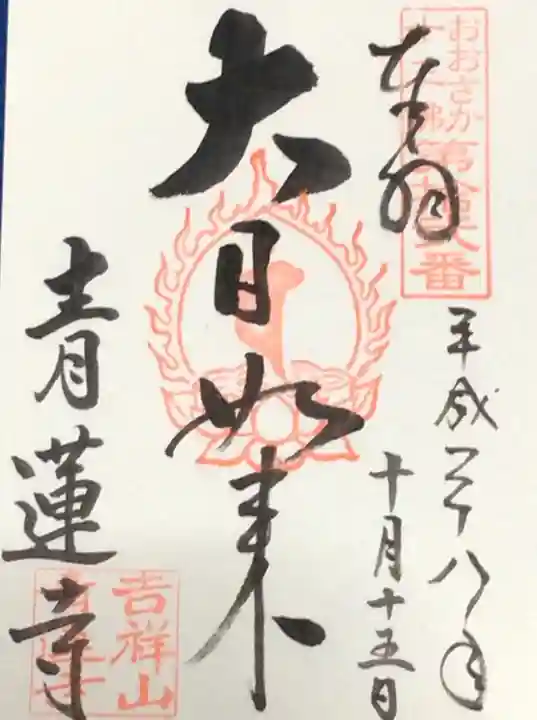 おおさか
十三佛第拾弐番
奉拝
平成二十八年
十月十五日
大日如来
青蓮寺
吉祥山
青蓮寺